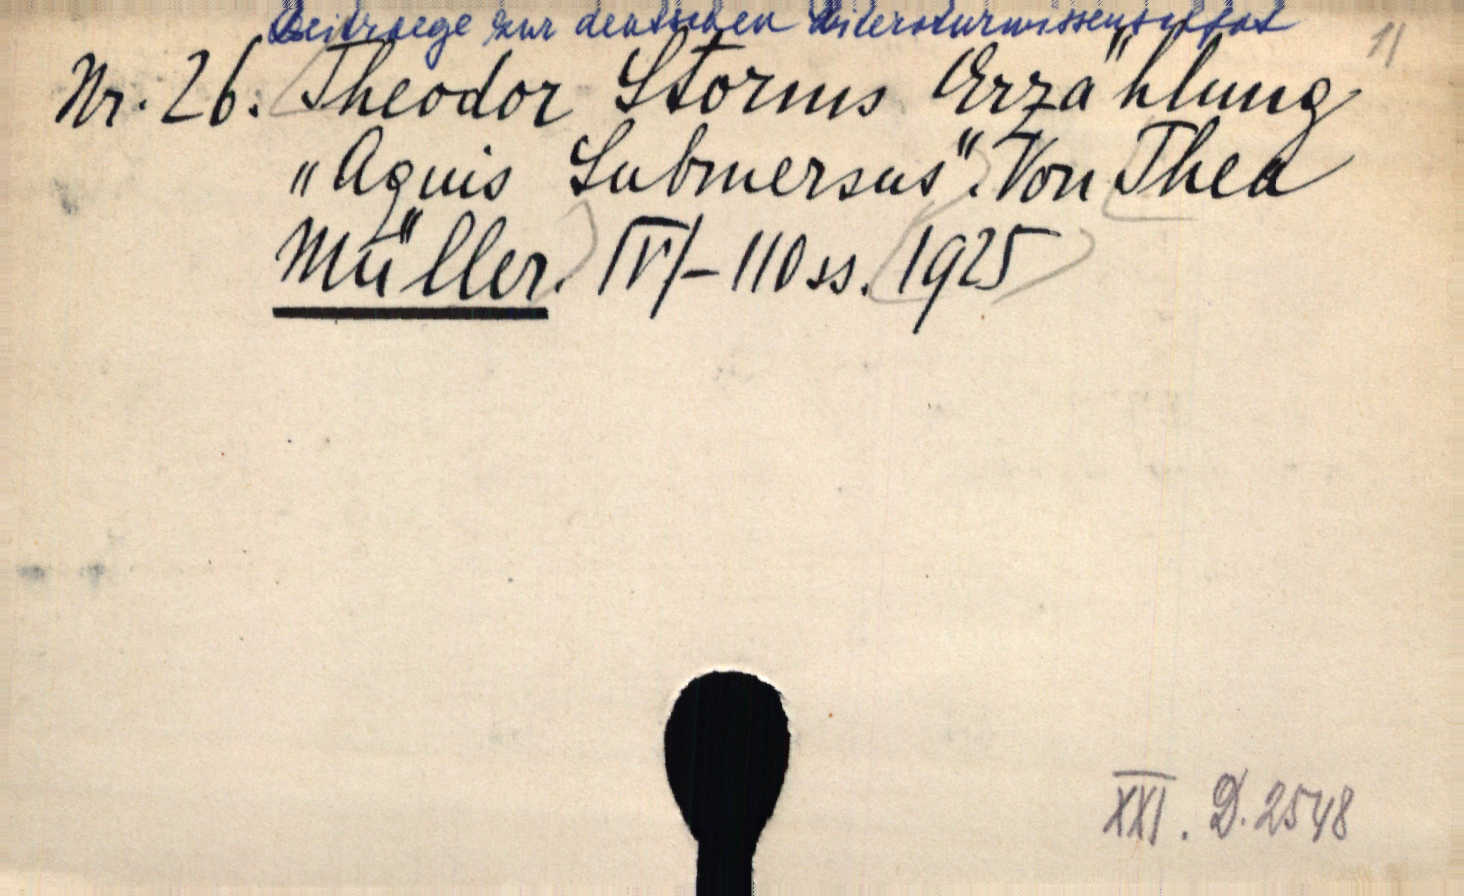 Beitraege zur deutschen Literaturwissenschaft
11
Nr. 26. Theodor Storms Erzählung
„Aquis Submersus". Von Thea
Müller. IV/-110 ss. 1925
XXI. D. 2548